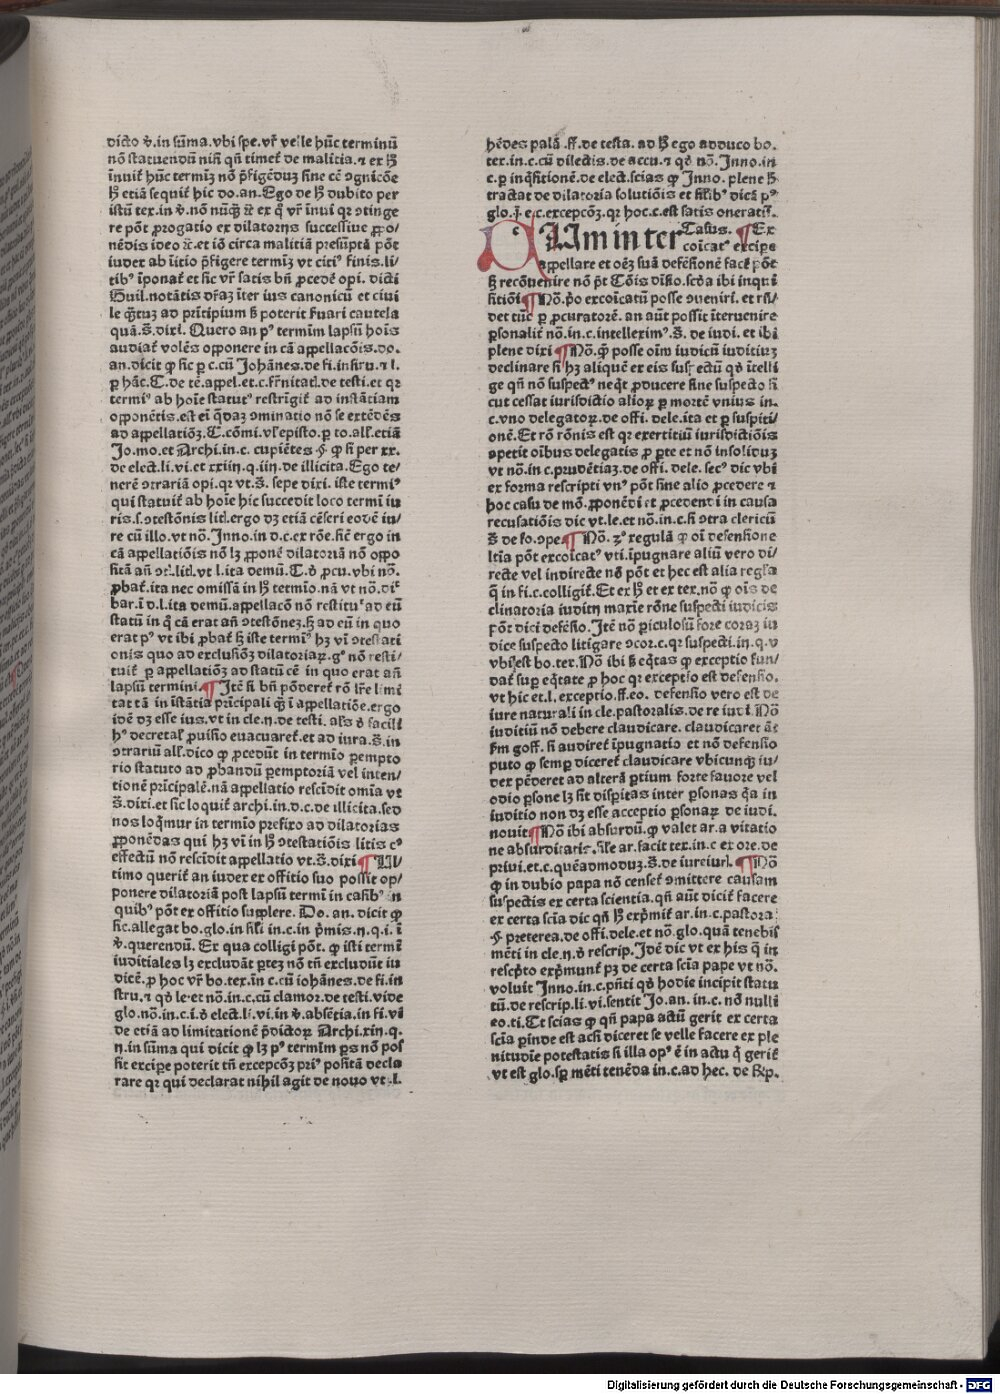 dicto .v. in sūma. vbi spe. vr̄ velle hūc terminū
nō statuendū nisi qn̄ timet̄ de malitia. ⁊ ex hͦ
īnuit̄ hūc termīꝫ nō p̄figēduꝫ sine cē ↄgnicōe
hͦ etiā sequit̄ hic do. an. Ego de hͦ dubito per
istū tex. in .v. nō nūqͣꝫ ⁊c̄ ex q̄ vr̄ īnui qꝛ ↄtinge
re pōt ꝓrogatio ex dilatorijs successiue ꝓpo/
nēdis ideo ⁊c̄. et iō circa malitiā presūptā pōt
iudex ab īitio p̄figere termīꝫ vt citiꝰ finis. li/
tibꝰ īponat̄ et sic vr̄ satis bn̄ ꝓcedē opi. dicti
Guil. notātis dr̄aꝫ īter ius canonicū et ciui
le qͣꝫtuꝫ ad prīcipium hͦ poterit seruari cautela
quā. s̄. dixi. Quero an pꝰ termīm lapsū hoīs
audiat̄ volēs opponere in cā appellacōis. do.
an. dicit ꝙ sic ꝑ c. cū Johānes. de fi. instru. ⁊ l.
ꝑ hāc. C. de tē. appel. et. c. fr̄nitatī. de testi. et qꝛ
termīꝰ ab hoīe statutꝰ restrīgit̄ ad instātiam
opponētis. est eī qͣdaꝫ ↄminatio nō se extēdēs
ad appellatiōꝫ. C. cōmi. vl̄ episto. ꝑ to. all̄. etiā
Jo. mo. et Archi. in. c. cupiētes. §. ꝙ si per xx.
de elect. li. vi. et xxiiij. q. iiij. de illicita. Ego te/
nerē ↄtrariā opi. qꝛ vt. s̄. sepe dixi. iste termīꝰ
qui statuit̄ ab hoīe hic succedit loco termī iu
ris. s. ↄtestōnis litl̄. ergo dꝫ etiā cēseri eodē iu/
re cū illo. vt nō. Inno. in d. c. ex rōe. sic̄ ergo in
cā appellatiōis nō lꝫ ꝓponē dilatoriā nō oppo
sitā an̄ ↄtl̄. litl̄. vt l. ita demū. C. d̄ ꝓcu. vbi nō.
ꝓbat̄. ita nec omissā in hͦ termīo. nā vt nō. diͭ
bar. ī d. l. ita demū. appellacō nō restituͬ ad eū
statū in q̄ cā erat an̄ ↄtestōneꝫ. hͦ ad eū in quo
erat pꝰ vt ibi ꝓbat̄ hͦ iste termīꝰ hꝫ vī ↄtestati
onis quo ad exclusiōꝫ dilatoriaꝝ. gͦ nō resti/
tuit̄ ꝑ appellatiōꝫ ad statū cē in quo erat an̄
lapsū termini. ¶ Itē si bn̄ pōderet̄ rō lr̄e limi
tat tā in īstātia prīcipali qͣꝫ ī appellatiōe. ergo
idē dꝫ esse ius. vt in cle. ij. de testi. als̄ d̄ facili
hꝰ decretal̄ ꝓuisio euacuaret̄. et ad iura. s̄. in
ↄtrariū all̄. dico ꝙ ꝓcedūt in termīo ꝑempto
rio statuto ad ꝓbandū ꝑemptoriā vel inten/
tionē prīcipalē. nā appellatio rescīdit omīa vt
s̄. dixi. et sic loquit̄ archi. in. d. c. de illicita. sed
nos loqͥmur in termīo prefixo ad dilatorias
ꝓponēdas qui hꝫ vī in hͦ ↄtestatiōis litis cꝰ
effectū nō rescīdit appellatio vt. s̄. dixi ¶ Ul/
timo querit̄ an iudex ex offitio suo possit op/
ponere dilatoriā post lapsū termī in casibꝰ in
quibꝰ pōt ex offitio supplere. Do. an. dicit ꝙ
sic. allegat bo. glo. in sīli in. c. in p̄mis. ij. q. i. ī
.v. querendū. Ex qua colligi pōt. ꝙ isti termī
iuditiales lꝫ excludāt ꝑteꝫ nō tn̄ excludūt iu
dicē. ꝑ hoc vr̄ bo. tex. in c. cū iohānes. de fi. in
stru. ⁊ qd̄ le. et nō. in. c. cū clamor. de testi. vide
glo. nō. in. c. i. d̄ elect. li. vi. in .v. absētia. in fi. vi
de etiā ad limitationē p̄dictoꝝ Archi. xiij. q.
ij. in sūma qui dicit ꝙ lꝫ pꝰ termīm ꝑs nō pos
sit excipe poterit tn̄ excepcōꝫ priꝰ positā decla
rare qꝛ qui declarat nihil agit de nouo vt. l.
hēdes palā. ff. de testa. ad hͦ ego adduco bo.
tex. in. c. cū dilectis. de accu. ⁊ qd̄ nō. Inno. in
c. ꝑ inqͥsitionē. de elect. scias ꝙ Inno. plene hͦ
tractat de dilatoria solutiōis et silībꝰ dicā pꝰ
glo. j. e. c. excepcōꝫ. qꝛ hoc. c. est satis oneratū.
Um inter Casus. ¶ Ex
coīcatꝰ excipe
appellare et oēꝫ suā defēsionē facē pōt
hͦ recōuenire nō pōt. Cōis diūo. scd̄a ibi inqͥi
sitiōi ¶ Nō. pͦ excoīcatū posse ↄueniri. et rn̄/
det tūc ꝑ ꝓcuratorē. an aūt possit īteruenire
ꝑsonalit̄ nō. in. c. intelleximꝰ. s̄. de iudi. et ibi
plene dixi ¶ Nō. ꝙ posse oīm iudicū iuditiuꝫ
declinare si hꝫ aliquē ex eis suspectū qd̄ ītelli
ge qn̄ nō suspectꝰ neqͣt ꝓducere sine suspecto si
cut cessat iurisdictio alioꝝ ꝑ mortē vnius in.
c. vno delegatoꝝ. de offi. dele. ita et ꝑ suspiti/
onē. Et rō rōnis est qꝛ exertitiū iurisdictiōis
cōpetit oībus delegatis ꝓ ꝑte et nō insoliduꝫ
vt nō. in c. prudētiaꝫ. de offi. dele. secꝰ dic vbi
ex forma rescripti vnꝰ pōt sine alio ꝓcedere ⁊
hoc casu de mō. ꝓponēdi et ꝓcedendi in causa
recusatiōis dic vt. le. et nō. in. c. si ↄtra clericū
s̄. de fo. ↄpe. ¶ Nō. ꝫͦ regulā ꝙ oī defensione
ltīa pōt excoīcatꝰ vti. īpugnare aliū vero di/
recte vel indirecte nō pōt et hec est alia regl̄a
q̄ in fi. c. colligit̄. Et ex hͦ et ex tex. nō ꝙ oīs de
clinatoria iuditij maxie rōne suspecti iudicis
pōt dici defēsio. Itē nō ꝑiculosū fore coraꝫ iu
dice suspecto litigare ↄcor. c. qꝛ suspecti. iij. q. v
vbi est bo. tex. Nō ibi hͦ eqͥtas ꝙ exceptio fun/
dat̄ sup̱ eqͥtate ꝑ hoc qꝛ exceptio est defensio.
vt hic et. l. exceptio. ff. eo. defensio vero est de
iure naturali in cle. pastoralis. de re iudi. Nō
iuditiū nō debere claudicare. claudicaret āt
s̄m goff. si audiret̄ īpugnatio et nō defensio
puto ꝙ semꝑ diceret̄ claudicare vbicunqꝫ iu/
dex pēderet ad alterā ꝑtium forte fauore vel
odio ꝑsone lꝫ sit disꝑitas inter ꝑsonas qͣa in
iuditio non dꝫ esse acceptio ꝑsonaꝝ de iudi.
nouit ¶ Nō ibi absurdū. ꝙ valet ar. a vitatio
ne absurditatis. sīle ar. facit tex. in. c ex ore. de
priui. et. c. quēadmoduꝫ. s̄. de iureiur. ¶ Nō
ꝙ in dubio papa nō censet̄ ↄmittere causam
suspectis ex certa scientia. qn̄ aūt dicit̄ facere
ex certa scīa dic qn̄ hͦ exp̄mit̄ ar. in. c. pastora:
§. preterea. de offi. dele. et nō. glo. quā tenebis
mēti in cle. ij. d̄ rescrip. Idē dic vt ex his q̄ in
rescp̄to exp̄munt̄ pꝫ de certa scīa pape vt nō.
voluit Inno. in. c. pn̄ti qd̄ hodie incipit statu
tū. de rescrip. li. vi. sentit Jo. an. in. c. nō nulli
eo. ti. Et scias ꝙ qn̄ papa actū gerit ex certa
scīa ꝑinde est acsi diceret se velle facere ex ple
nitudīe potestatis si illa opꝰ ē in actu q̄ gerit̄
vt est glo. sꝑ mēti tenēda in. c. ad hec. de rescp.
Digitalisierung gefördert durch die Deutsche Forschungsgemeinschaft - DFG